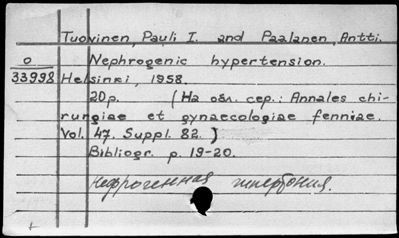 Tuovinen, Pauli I. and Paalanen, Antti.
O Nephrogenic hypertension.
33998 Helsinki, 1958.
20p. (На обл. сер.: Annales chi-
rurgiae et gynaecologiae fenniae.
Vol. 47. Suppl. 82.)
Bibliogr. p. 19-20.
нефрогенная гипертония.